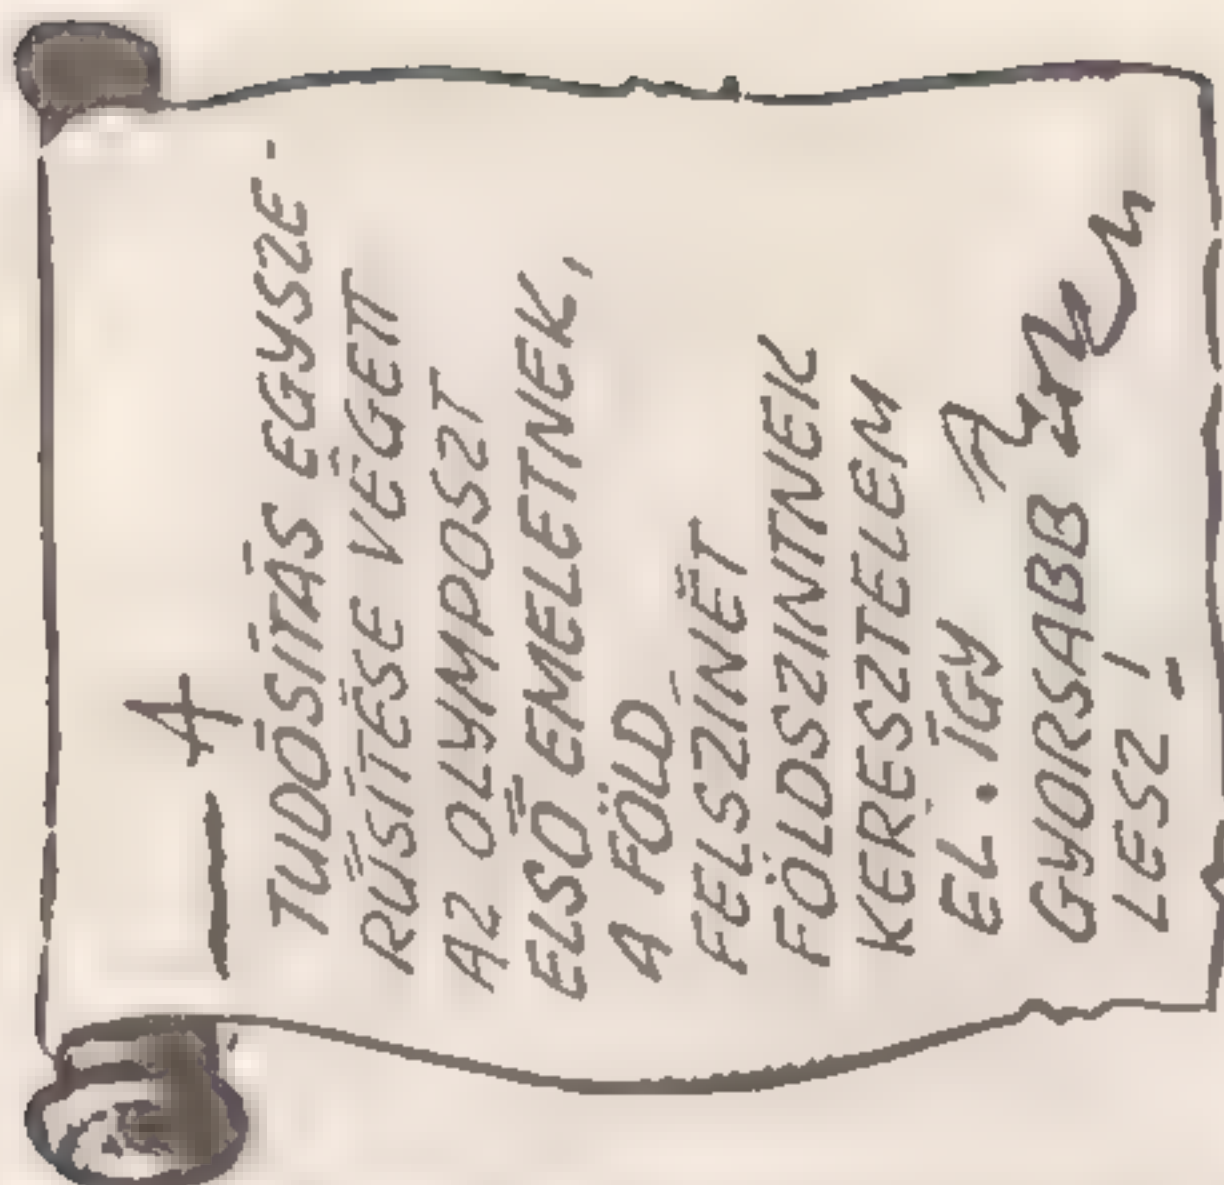 A
TUDÓSÍTÁS EGYSZE-
RŰSÍTÉSE VÉGETT
AZ OLYMPOSZT
ELSŐ EMELETNEK,
A FÖLD
FELSZÍNÉT
FÖLDSZINTNEK
KERESZTELEM
EL. ÍGY
GYORSABB
LESZ!